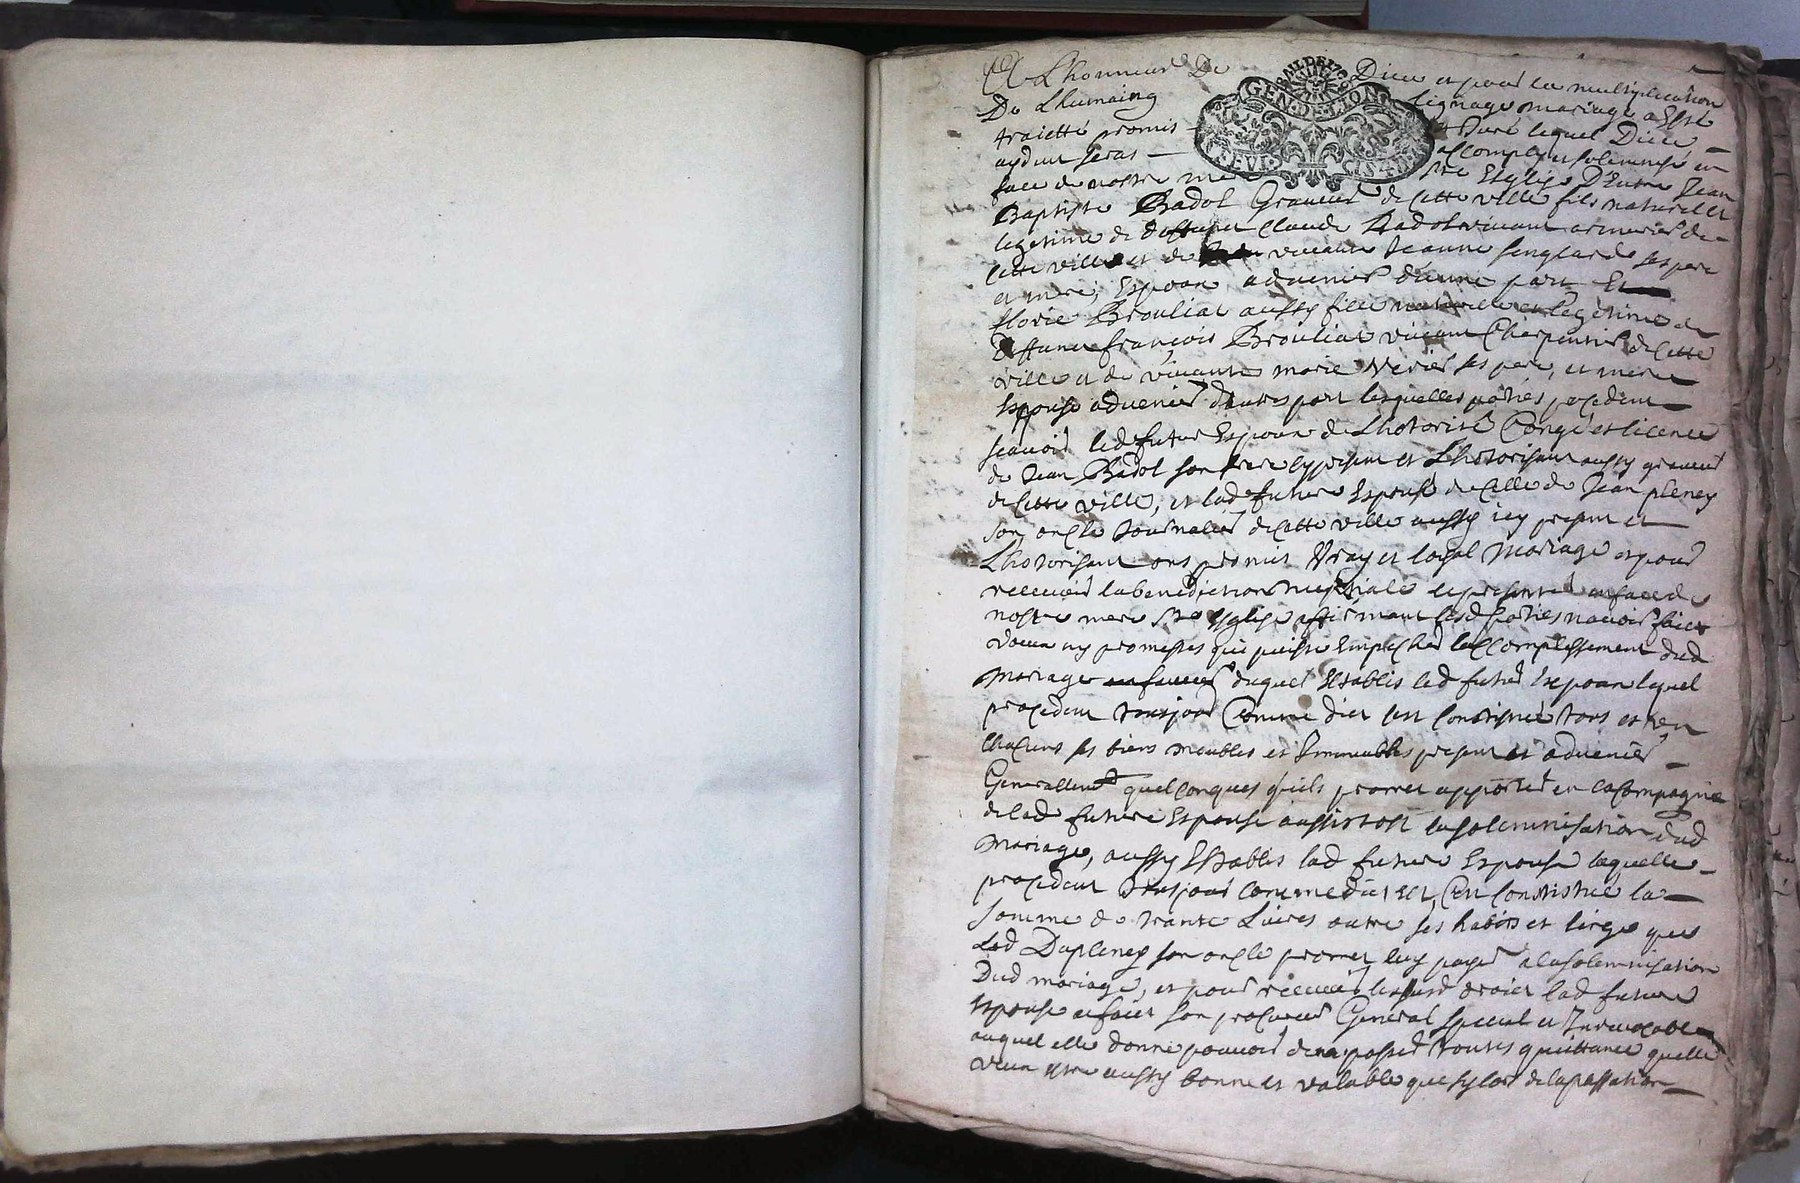 A L'honneur De Dieu et pour la multiplication
De Lhumaing lignage mariage a Esté
traietté promis et Juré lequel Dieu
aydant seras accomply et solemnisé en
face de nostre mere Ste Esglize D'Entre Jean
Baptiste Badol Graveur de Cette ville fils naturel et
legitime de deffunct Claude Badol vivant armurier de
Cette ville et de vivante Jeanne ses pere
et mere, Espoux advenir d'une part Et
florie Brouliat aussy fille naturelle et Legitime de
Deffunct françois Brouliat vivant Charpentier de Cette
ville et de vivante marie ses pere, et mere
Espouse advenir d'autre part lesquelles parties procedant
scavoir led futur Espoux de Lhotorité Congé et licence
de Jean Badol son frere cy present et Lhotorisant aussy graveur
de Cette ville, et lad future Espouse de Celle de Jean pleney
son oncle Journalier de Cette ville aussy icy present et
Lhotorisant ont promis Vray et loyal Mariage et pour
recevoir la benediction nuptiale se presenter en face de
nostre mere Ste Esglise affirmant lesd parties navoir faict
vœux ny promesses qui puisse Empescher laccomplissement dud
mariage en faveur duquel Establis led futur Espoux lequel
procedant tousjours Comme dict sest Constitué tous et un
chacuns ses biens meubles et Immeubles present et advenir
Generallemt quelconques quils promet apporter en la Compagnie
de lad future Espouse aussitost la solemnisation dud
Mariage, aussy Establis lad future Espouse laquelle
procedant tousjours comme dict est, sest Constitué la
somme de trante Livres outre ses habits et linge que
Led Dupleney son oncle promet luy payer a la solemnisation
Dud mariage, et pour recevoir lesusd droict lad future
Espouse a faict son procureur General special et Irrevocable
auquel elle donne pouvoir den passer toutes quittance quelle
veux estre aussy bonne et valable que sy lors de la passation
GEN. DE LION